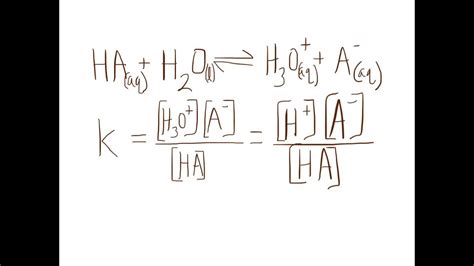 HA(aq) + H₂O(l) ⇌ H₃O⁺(aq) + A⁻(aq)
K = [H₃O⁺][A⁻]/[HA] = [H⁺][A⁻]/[HA]